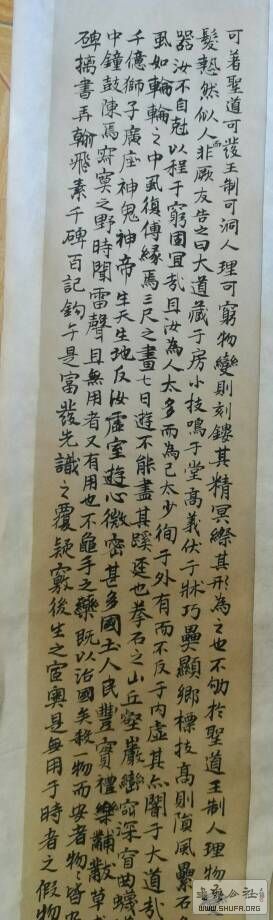 可著聖道可發王制可洞人理可窮物變則刻鏤其精冥縩其形為之也不劬於聖道王制人理物
髮熱然似人非厥友告之曰大道藏于房小技鳴于堂高義伏于牀巧奰顯鄉標技高則隕風累石
器汝不自尅以程于窮固宜哉且汝為人太多而為己太少徇于外有而不反于内虛其亦闇于大道哉
虱如輪輪之中虱復傅緣焉三尺之畫七日遊不能盡其蹊逕也拳石之山丘壑巖巒窅深窅曲蠛
千億獅子廣座神鬼神帝生天生地反汝虛室遊心微密甚多國土人民豐實禮樂黼黻草
中鐘鼓陳焉寂寞之野時聞雷聲且無用者又有用也不龜手之藥既以治國矣殺一物而安者物物皆安
碑摛書弄翰飛素千碑百記鉤午是富發先識之覆疑竅後生之宧奧是無用于時者之假物
WWW.SHUFA.ORG